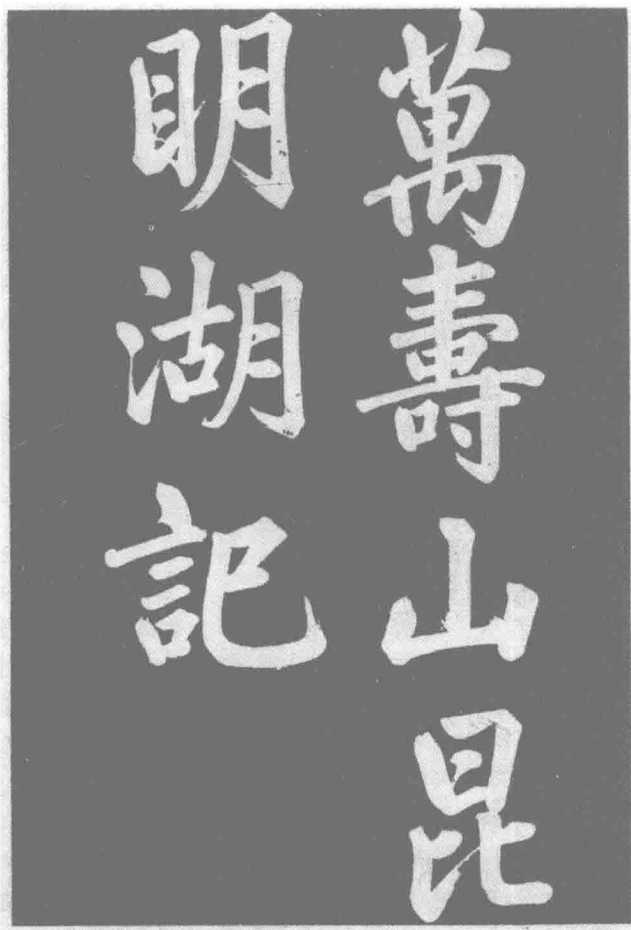 萬壽山昆
明湖記